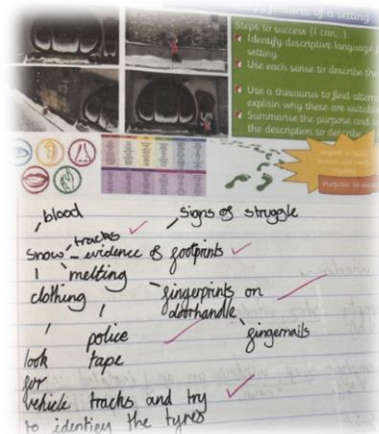 features of a setting
Steps to success (I can...):
Identify descriptive language
setting
Use each sense to describe the
Use a thesaurus to find altern
explain why these are suitable
Summarise the purpose and i
the description to describe
blood
signs of struggle
tracks
snow - evidence of footprints
melting
clothing
fingerprints on
doorhandle
police
fingernails
look
tape
for
vehicle tracks and try
to identify the tyres